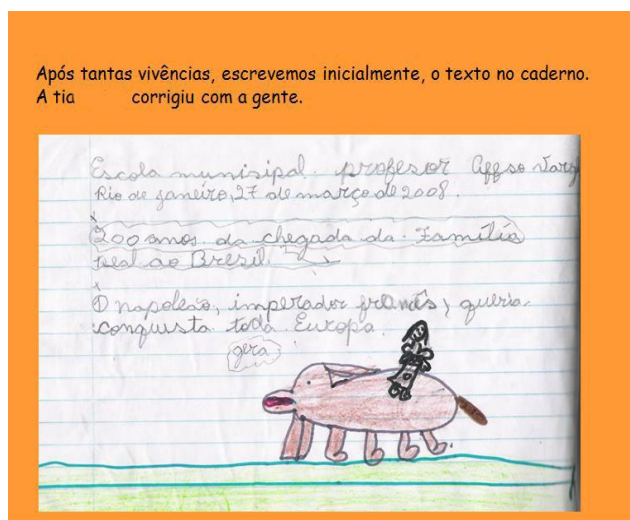 Após tantas vivências, escrevemos inicialmente, o texto no caderno.
A tia corrigiu com a gente.
Escola munisipal profesor
Rio de janeiro, 27 de março de 2008.
200 anos da chegada da Família
real ao Brezil.
O napoleão, imperador francês, queria
conquista toda Europa.
gera